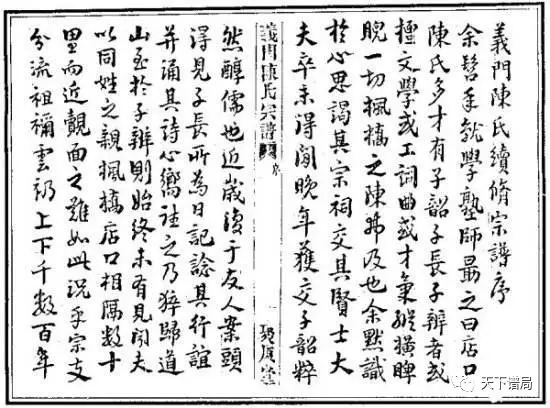 義門陳氏續脩宗譜序
余髫年就學塾師勗之曰店口
陳氏多才有子韶子長子辨者或
擅文學或工詞曲或才氣縱橫睥
睨一切楓橋之陳弗及也余默識
於心思謁其宗祠交其賢士大
夫卒未得閒晚年獲交子韶粹
義門陳氏宗譜 序
聚 堂
然醇儒也近歲復于友人案頭
得見子長所為日記諗其行誼
并誦其詩心嚮往之乃猝歸道
山至於子辨則始終未有見聞夫
以同姓之親楓橋店口相隔數十
里而近覿面之難如此況乎宗支
分流祖禰雲礽上下千數百年
天下谱局